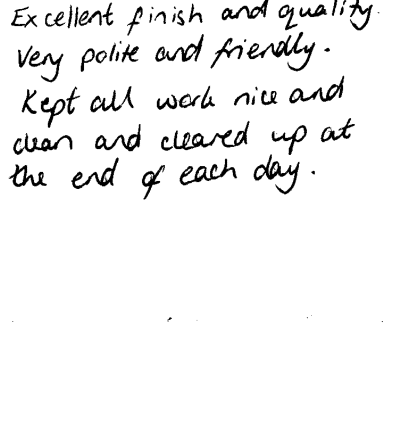 Excellent finish and quality.
Very polite and friendly.
Kept all work nice and
clean and cleared up at
the end of each day.